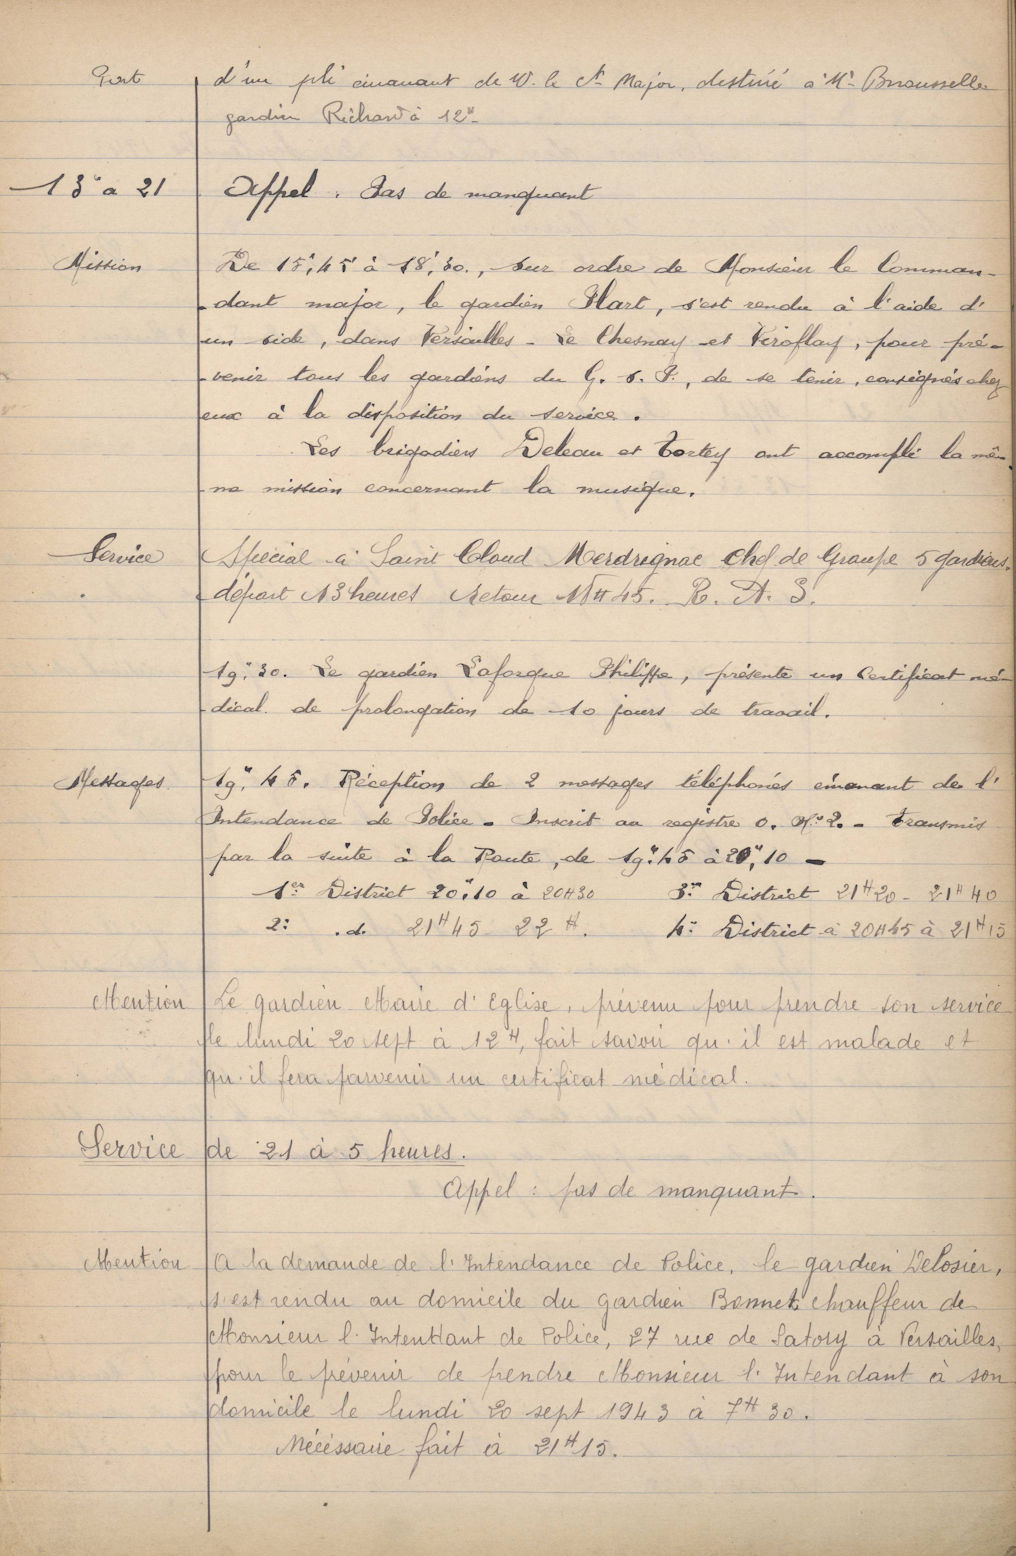 Port d'un pli émanant de M. le Ct Major, destiné à Mr Brousselle
gardien Richard à 12H
13H à 21 Appel : Pas de manquant
Mission De 15H,45 à 18H,30., sur ordre de Monsieur le Comman-
dant major, le gardien Plart, s'est rendu à l'aide d'
un side, dans Versailles - Le Chesnay et Viroflay, pour pré-
venir tous les gardiens du G. S. P., de se tenir, consignés chez
eux à la disposition du service.
Les brigadiers Deleau et Tortey ont accompli la mê-
me mission concernant la musique.
Service Spécial à Saint Cloud Merdrignac chef de Groupe 5 gardiens.
départ 13 heures retour 18H45. R. A. S.
19H,30. Le gardien Laforgue Philippe, présente un certificat mé-
dical de prolongation de 10 jours de travail.
Messages 19H,45. Réception de 2 messages téléphonés émanant de l'
Intendance de Police - Inscrit au registre O. No 2. - Transmis
par la suite à la Route, de 19H,45 à 20H,10 -
1er District 20H,10 à 20H30 3e District 21H20 - 21H40
2e .d. 21H45 22H. 4e District à 20H45 à 21H15
Mention Le gardien Maire d'Eglise, prévenu pour prendre son service
le lundi 20 sept à 12H, fait savoir qu'il est malade et
qu'il fera parvenir un certificat médical.
Service de 21 à 5 heures.
Appel : pas de manquant.
Mention A la demande de l'Intendance de Police, le gardien Delosier,
s'est rendu au domicile du gardien Bonnet chauffeur de
Monsieur l'Intendant de Police, 27 rue de Satory à Versailles,
pour le prévenir de prendre Monsieur l'Intendant à son
domicile le lundi 20 sept 1943 à 7H30.
Nécéssaire fait à 21H15.